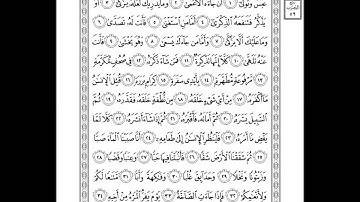 عَبَسَ وَتَوَلَّىٰٓ ١ أَن جَآءَهُ ٱلْأَعْمَىٰ ٢ وَمَا يُدْرِيكَ لَعَلَّهُۥ يَزَّكَّىٰٓ ٣ أَوْ
يَذَّكَّرُ فَتَنفَعَهُ ٱلذِّكْرَىٰٓ ٤ أَمَّا مَنِ ٱسْتَغْنَىٰ ٥ فَأَنتَ لَهُۥ تَصَدَّىٰ ٦
وَمَا عَلَيْكَ أَلَّا يَزَّكَّىٰ ٧ وَأَمَّا مَن جَآءَكَ يَسْعَىٰ ٨ وَهُوَ يَخْشَىٰ ٩ فَأَنتَ
عَنْهُ تَلَهَّىٰ ١٠ كَلَّآ إِنَّهَا تَذْكِرَةٌ ١١ فَمَن شَآءَ ذَكَرَهُۥ ١٢ فِى صُحُفٍ مُّكَرَّمَةٍ
١٣ مَّرْفُوعَةٍ مُّطَهَّرَةٍۭ ١٤ بِأَيْدِى سَفَرَةٍ ١٥ كِرَامٍۭ بَرَرَةٍ ١٦ قُتِلَ ٱلْإِنسَـٰنُ
مَآ أَكْفَرَهُۥ ١٧ مِنْ أَىِّ شَىْءٍ خَلَقَهُۥ ١٨ مِن نُّطْفَةٍ خَلَقَهُۥ فَقَدَّرَهُۥ ١٩ ثُمَّ
ٱلسَّبِيلَ يَسَّرَهُۥ ٢٠ ثُمَّ أَمَاتَهُۥ فَأَقْبَرَهُۥ ٢١ ثُمَّ إِذَا شَآءَ أَنشَرَهُۥ ٢٢ كَلَّا لَمَّا
يَقْضِ مَآ أَمَرَهُۥ ٢٣ فَلْيَنظُرِ ٱلْإِنسَـٰنُ إِلَىٰ طَعَامِهِۦٓ ٢٤ أَنَّا صَبَبْنَا ٱلْمَآءَ صَبًّا
٢٥ ثُمَّ شَقَقْنَا ٱلْأَرْضَ شَقًّا ٢٦ فَأَنۢبَتْنَا فِيهَا حَبًّا ٢٧ وَعِنَبًا وَقَضْبًا ٢٨
وَزَيْتُونًا وَنَخْلًا ٢٩ وَحَدَآئِقَ غُلْبًا ٣٠ وَفَـٰكِهَةً وَأَبًّا ٣١ مَّتَـٰعًا لَّكُمْ
وَلِأَنْعَـٰمِكُمْ ٣٢ فَإِذَا جَآءَتِ ٱلصَّآخَّةُ ٣٣ يَوْمَ يَفِرُّ ٱلْمَرْءُ مِنْ أَخِيهِ ٣٤